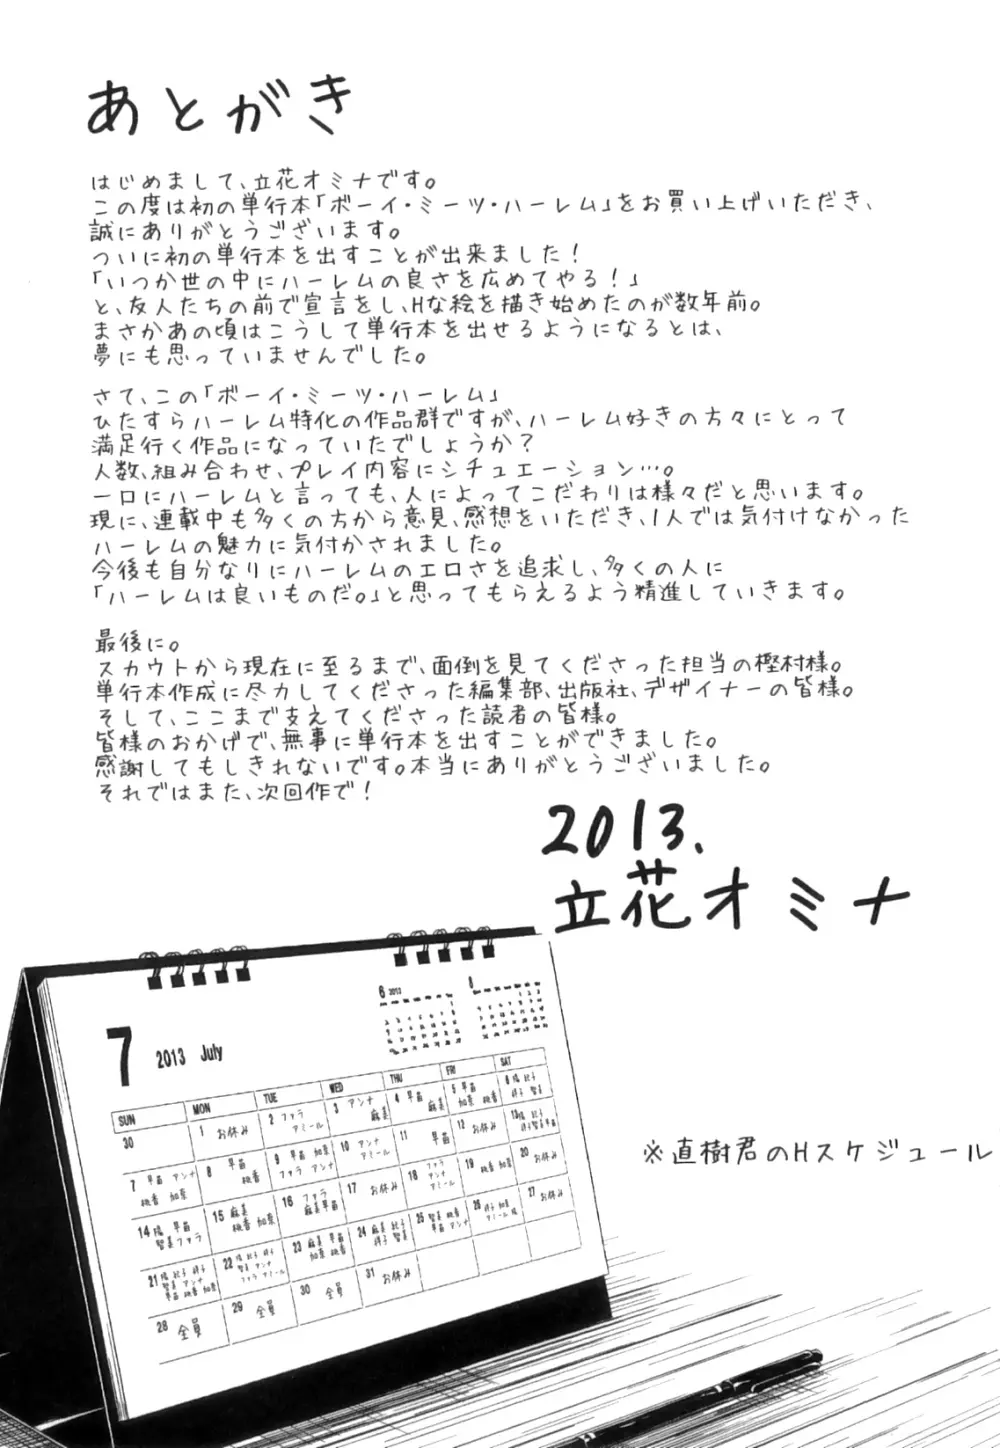 あとがき
はじめまして、立花オミナです。
この度は初の単行本「ボーイ・ミーツ・ハーレム」をお買い上げいただき、
誠にありがとうございます。
ついに初の単行本を出すことが出来ました！
「いつか世の中にハーレムの良さを広めてやる！」
と、友人たちの前で宣言をし、Hな絵を描き始めたのが数年前。
まさかあの頃はこうして単行本を出せるようになるとは、
夢にも思っていませんでした。
さて、この「ボーイ・ミーツ・ハーレム」
ひたすらハーレム特化の作品群ですが、ハーレム好きの方々にとって
満足行く作品になっていたでしょうか？
人数、組み合わせ、プレイ内容にシチュエーション…。
一口にハーレムと言っても、人によってこだわりは様々だと思います。
現に、連載中も多くの方から意見、感想をいただき、1人では気付けなかった
ハーレムの魅力に気付かされました。
今後も自分なりにハーレムのエロさを追求し、多くの人に
「ハーレムは良いものだ。」と思ってもらえるよう精進していきます。
最後に。
スカウトから現在に至るまで、面倒を見てくださった担当の樫村様。
単行本作成に尽力してくださった編集部、出版社、デザイナーの皆様。
そして、ここまで支えてくださった読者の皆様。
皆様のおかげで、無事に単行本を出すことができました。
感謝してもしきれないです。本当にありがとうございました。
それではまた、次回作で！
2013.
立花オミナ
6 2013
8
7 2013 July
SUN MON TUE WED THU FRI SAT
30
1 お休み
2 ファラ アミール
3 アンナ 麻美
4 早苗 麻美
5 早苗 加奈 桃香
6
7 早苗 アンナ 桃香 加奈
8 早苗 桃香
9 早苗 加奈 ファラ アンナ
10 アンナ アミール
11 早苗
12 お休み
13
14 早苗 ファラ
15 麻美 桃香 加奈
16 ファラ 麻美 早苗
17 お休み
18 ファラ アンナ アミール
19 桃香 加奈
20 お休み
21
22
23 麻美 早苗 加奈 桃香
24
25
26
27 お休み
28 全員
29 全員
30 全員
31 お休み
※直樹君のHスケジュール